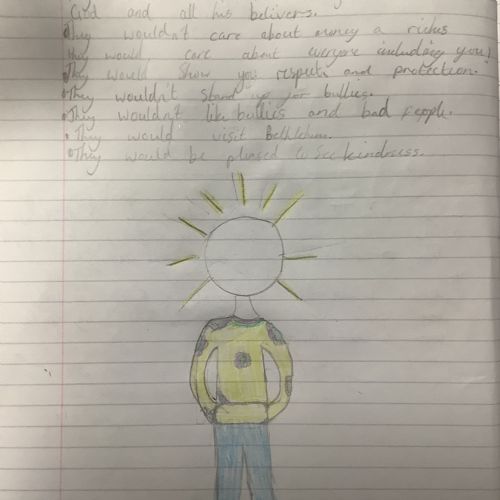 God and all his belivers.
• They wouldn't care about money a riches
they would care about everyone including you!
• They would show you respect and protection.
• They wouldn't stand up for bullies.
• They wouldn't like bullies and bad people.
• They would visit Bethlehem.
• They would be pleased to see kindness.